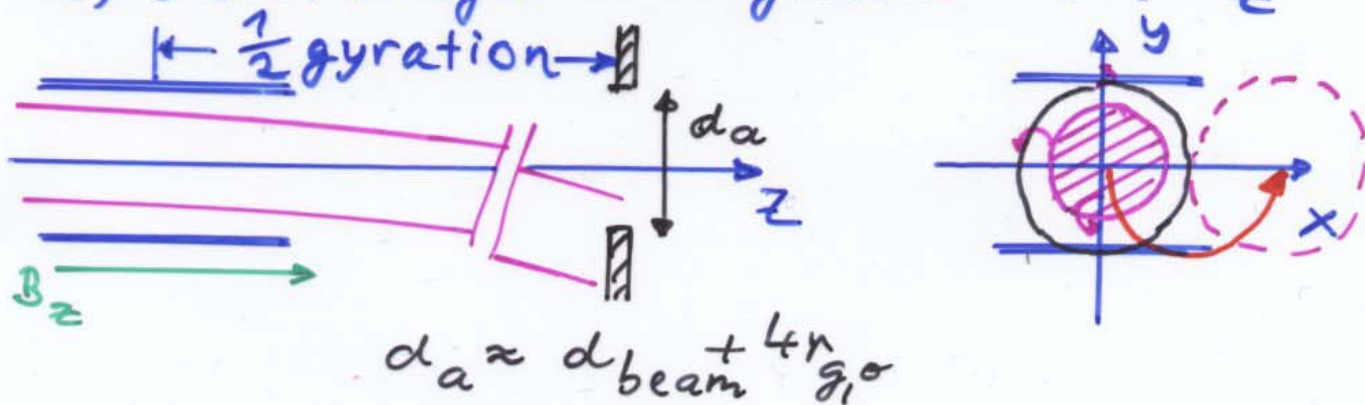 ½ gyration
y
d_a
z
x
B_z
d_a ≈ d_beam + 4r_g,σ